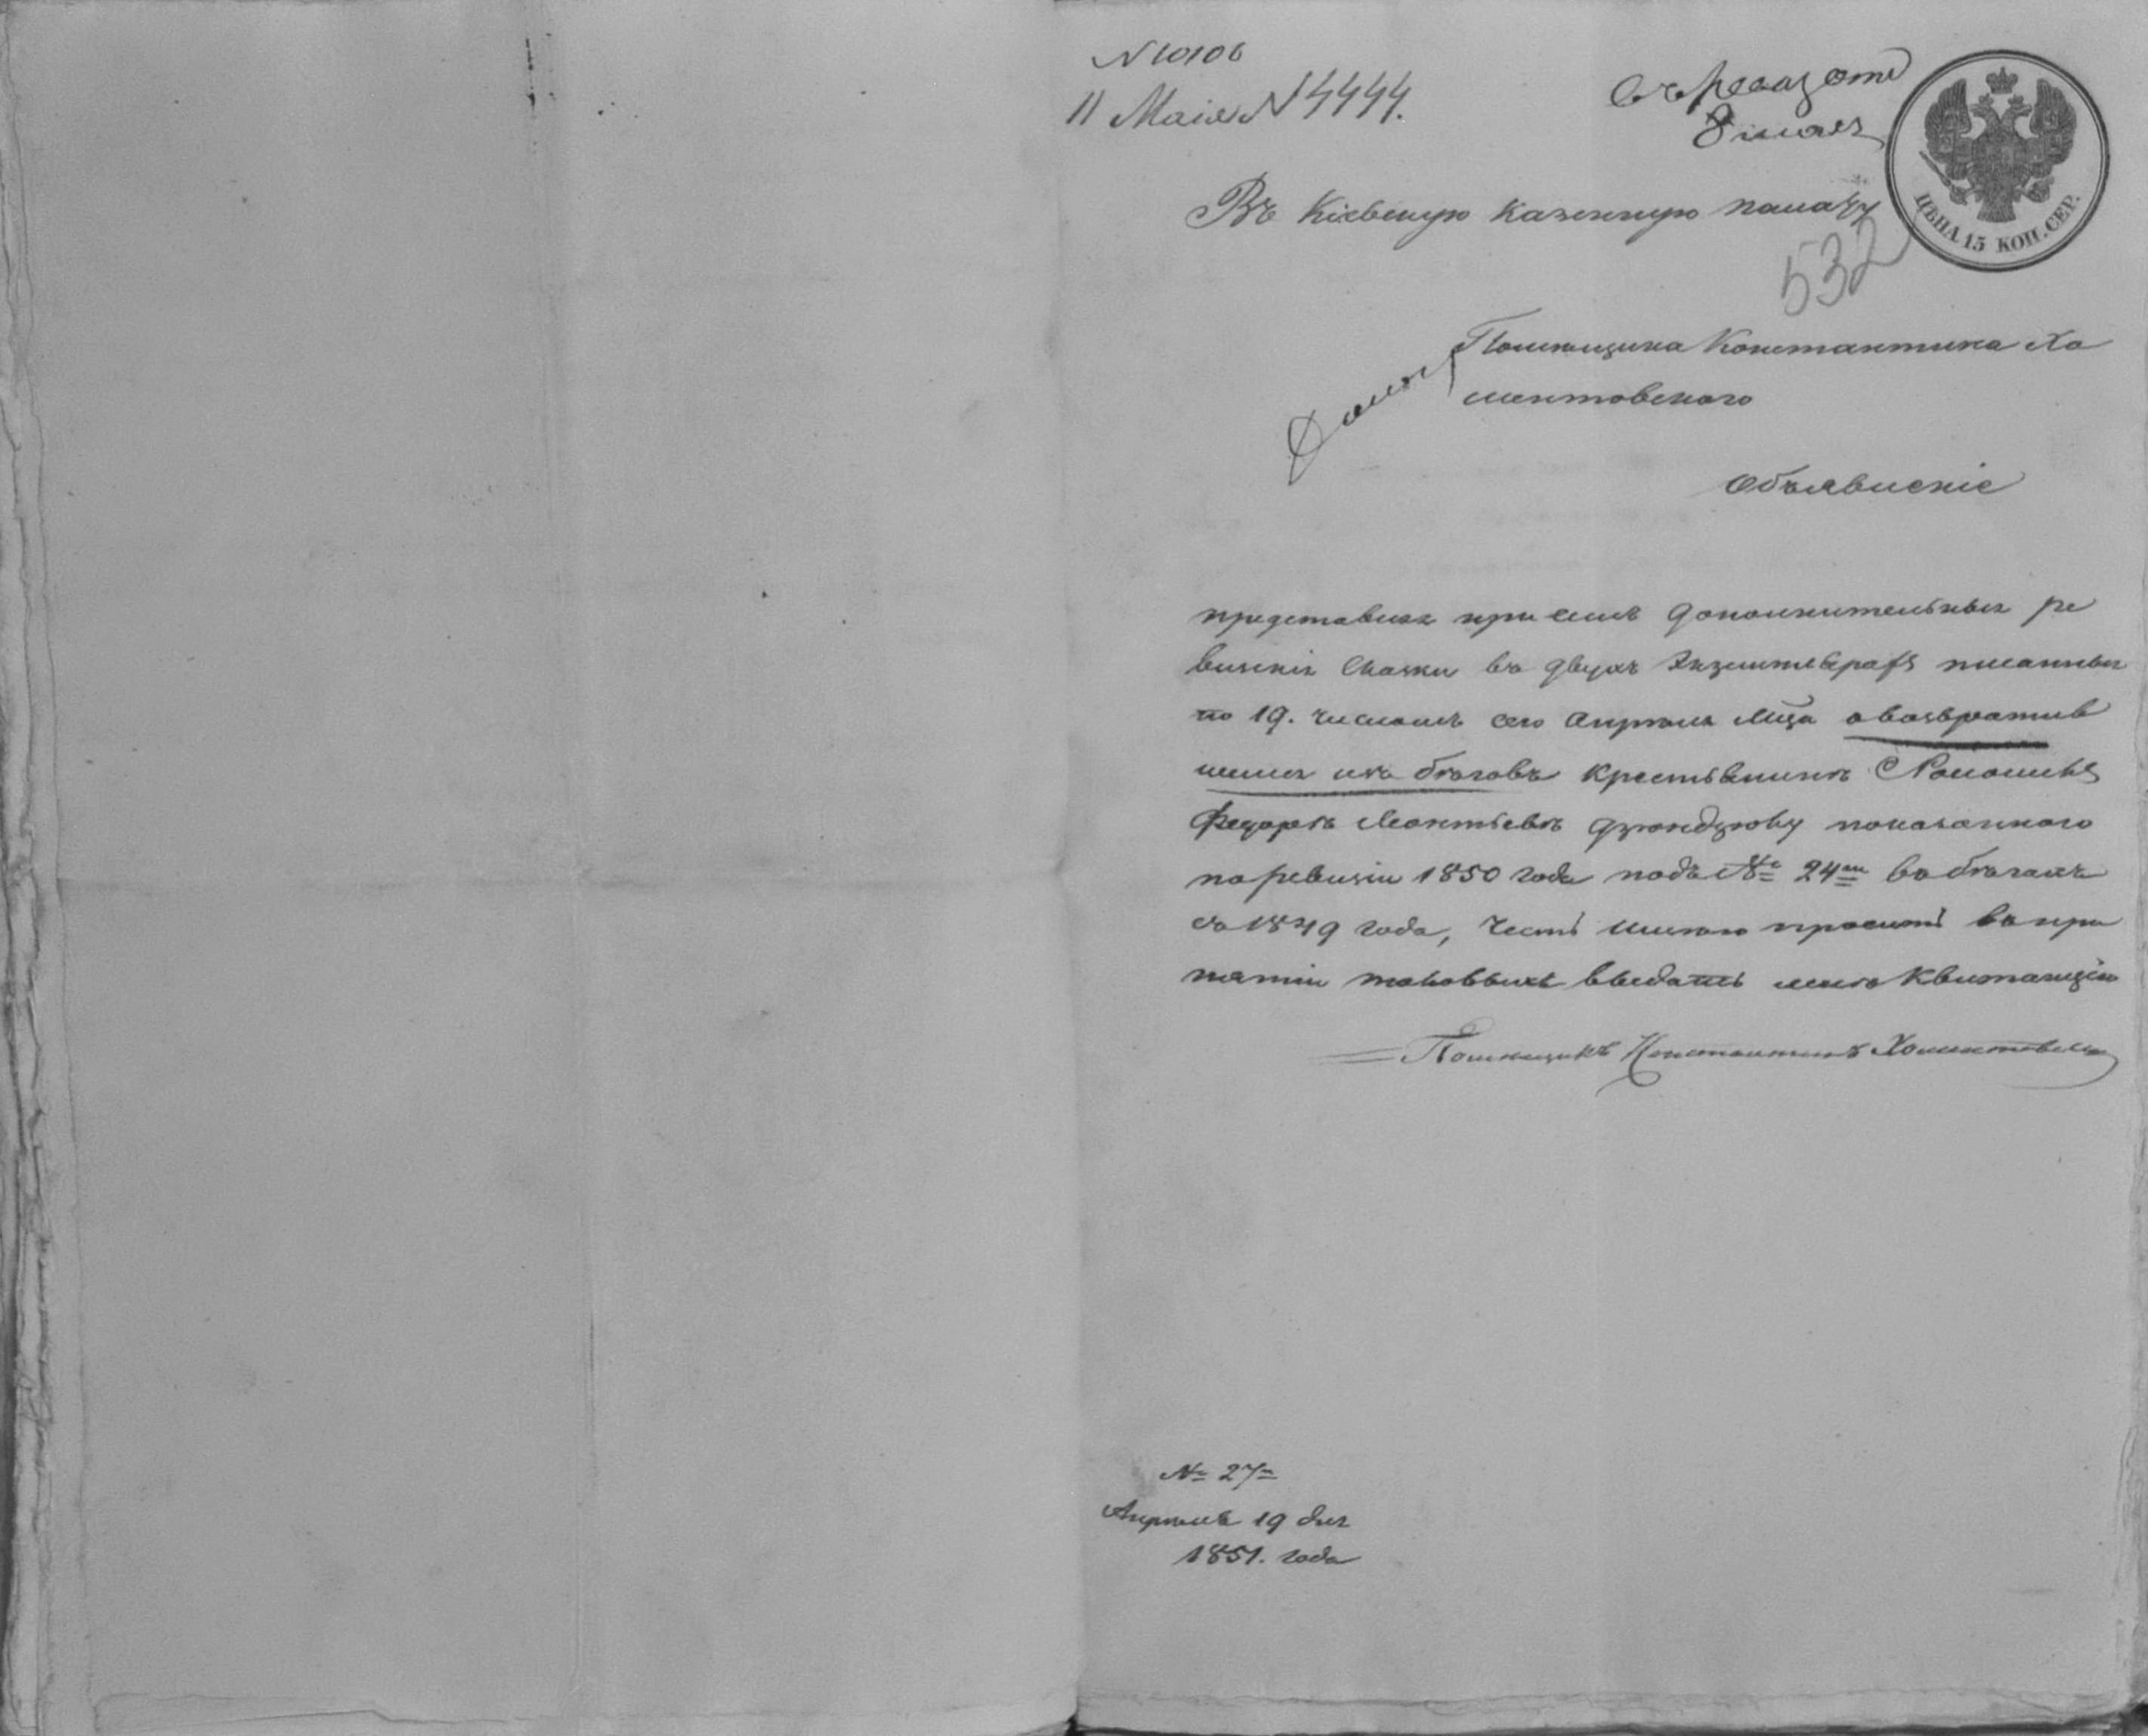 N 10106
11 Маія N 4444.
8 мая
ЦѢНА 15 КОП. СЕР.
Въ Кіевскую Казенную палату
532
Помѣщика Константина Хо
ментовскаго
Объявленіе
представляя при семъ дополнительныя ре
визскія сказки въ двухъ Экземплярахъ писанныя
по 19. числомъ сего Апрѣля Мца о возвратив
шемся изъ бѣговъ крестьянинѣ
Федорѣ Леонтьевѣ показанного
по ревизіи 1850 года подъ № 24м въ бѣгахъ
съ 1849 года, Честь имѣю просить въ при
нятіи таковыхъ выдать мнѣ Квитанцію
Помѣщикъ Константинъ Хоментовскій
№ 27
Апрѣля 19 дня
1851. года